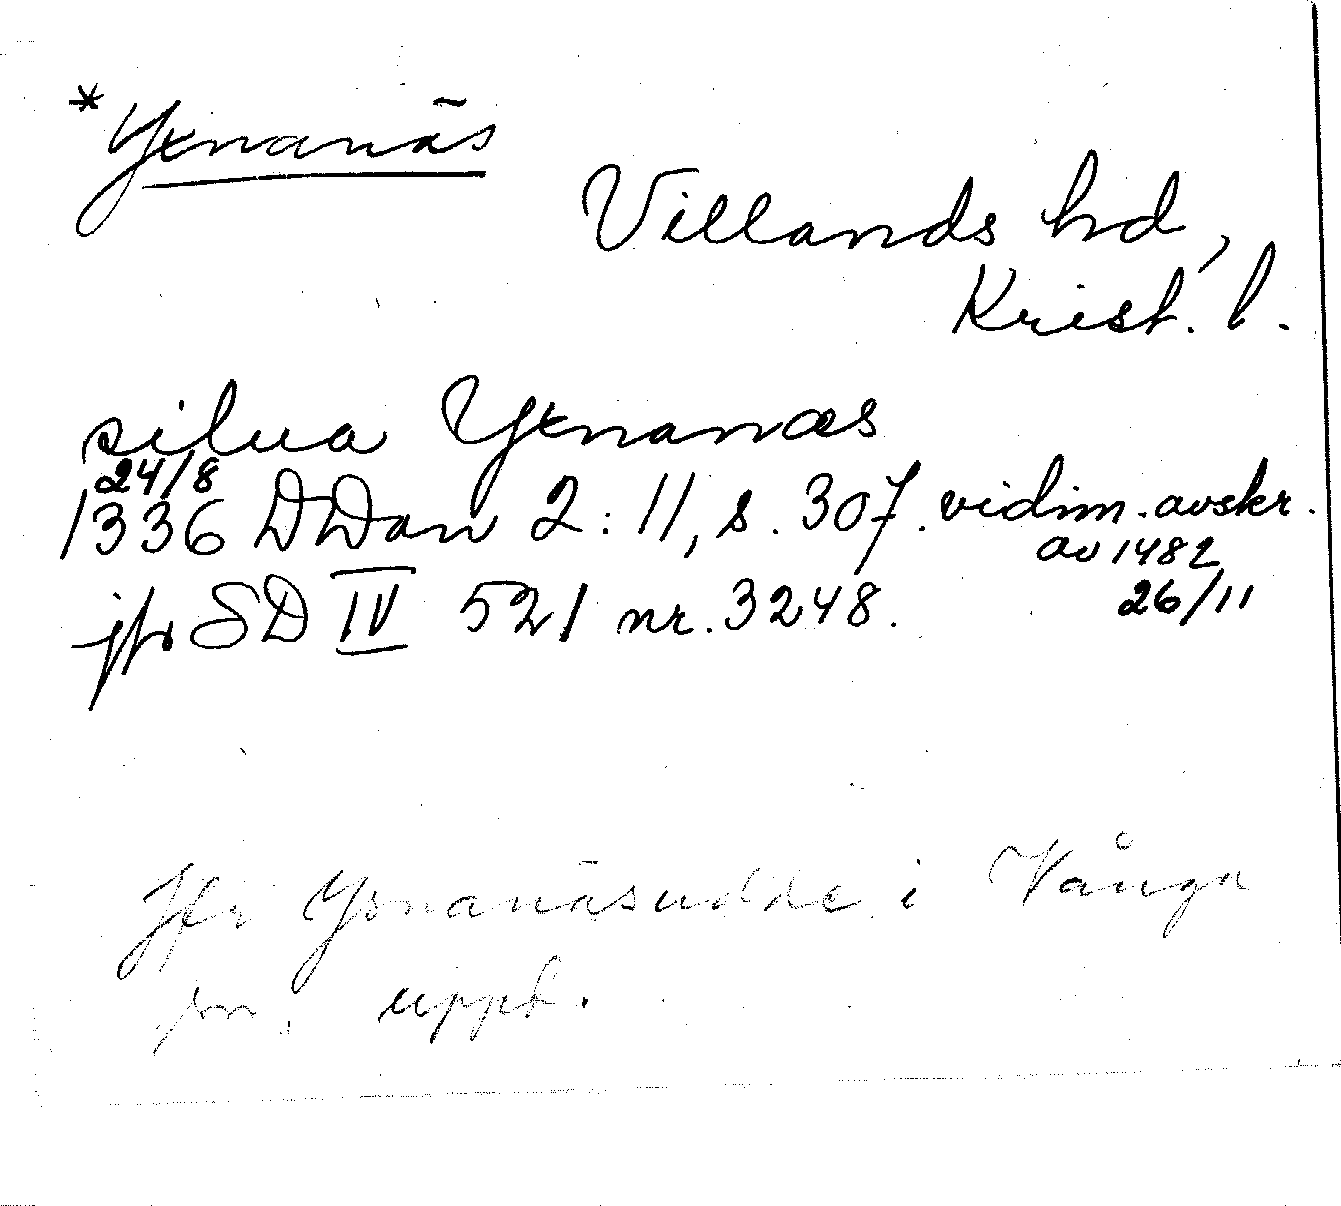 *Yxnanäs
Villands hd,
Krist. l.
silua Yxnanæs
24/8
1336 DDan 2: 11, s. 307. vidim. avskr.
av 1482
jfr SD IV 521 nr. 3248. 26/11
Jfr Yxnanäsudde i Vånga
sn. uppt.